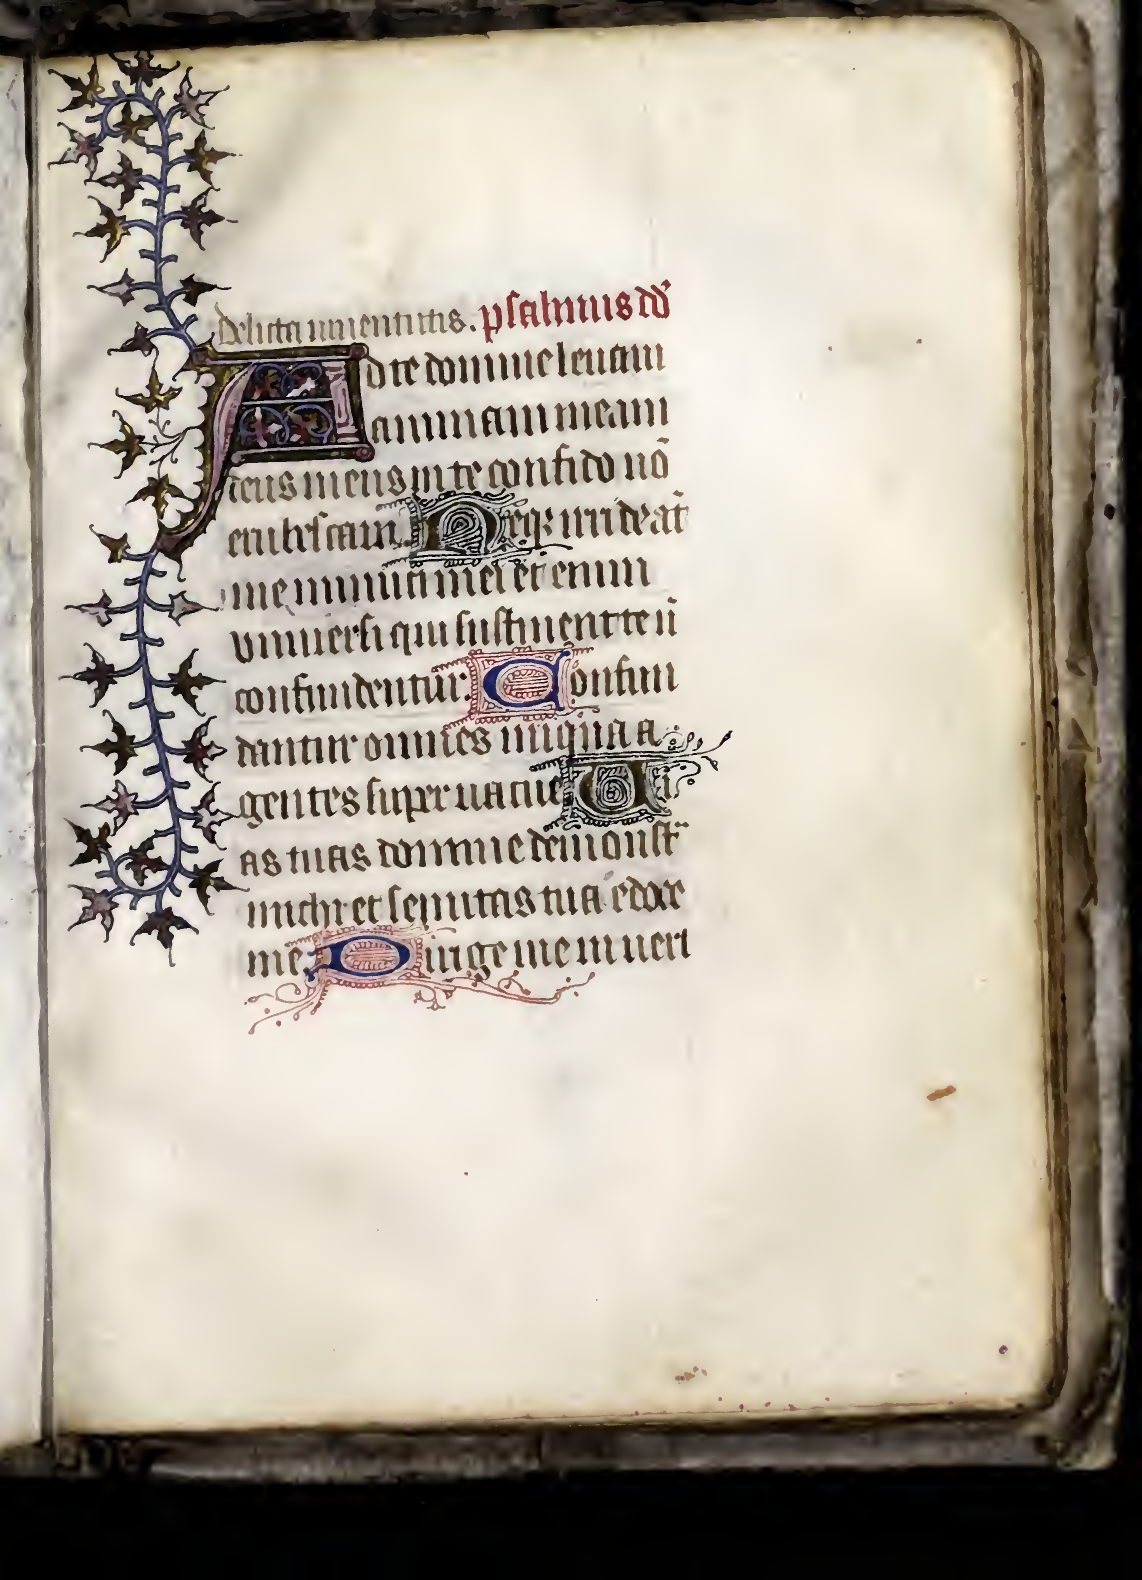 delicta iuventutis. psalmus dd̄
Ad te domine levavi
animam meam
deus meus in te confido nō
erubescam Neq; irrideāt
me inimici mei et enim
universi qui sustinent te n̄
confundentur. Confun
dantur omnes iniqua a
gentes supervacue Vi
as tuas domine demonstᵃ
michi et semitas tuas edoce
me. Dirige me in veri